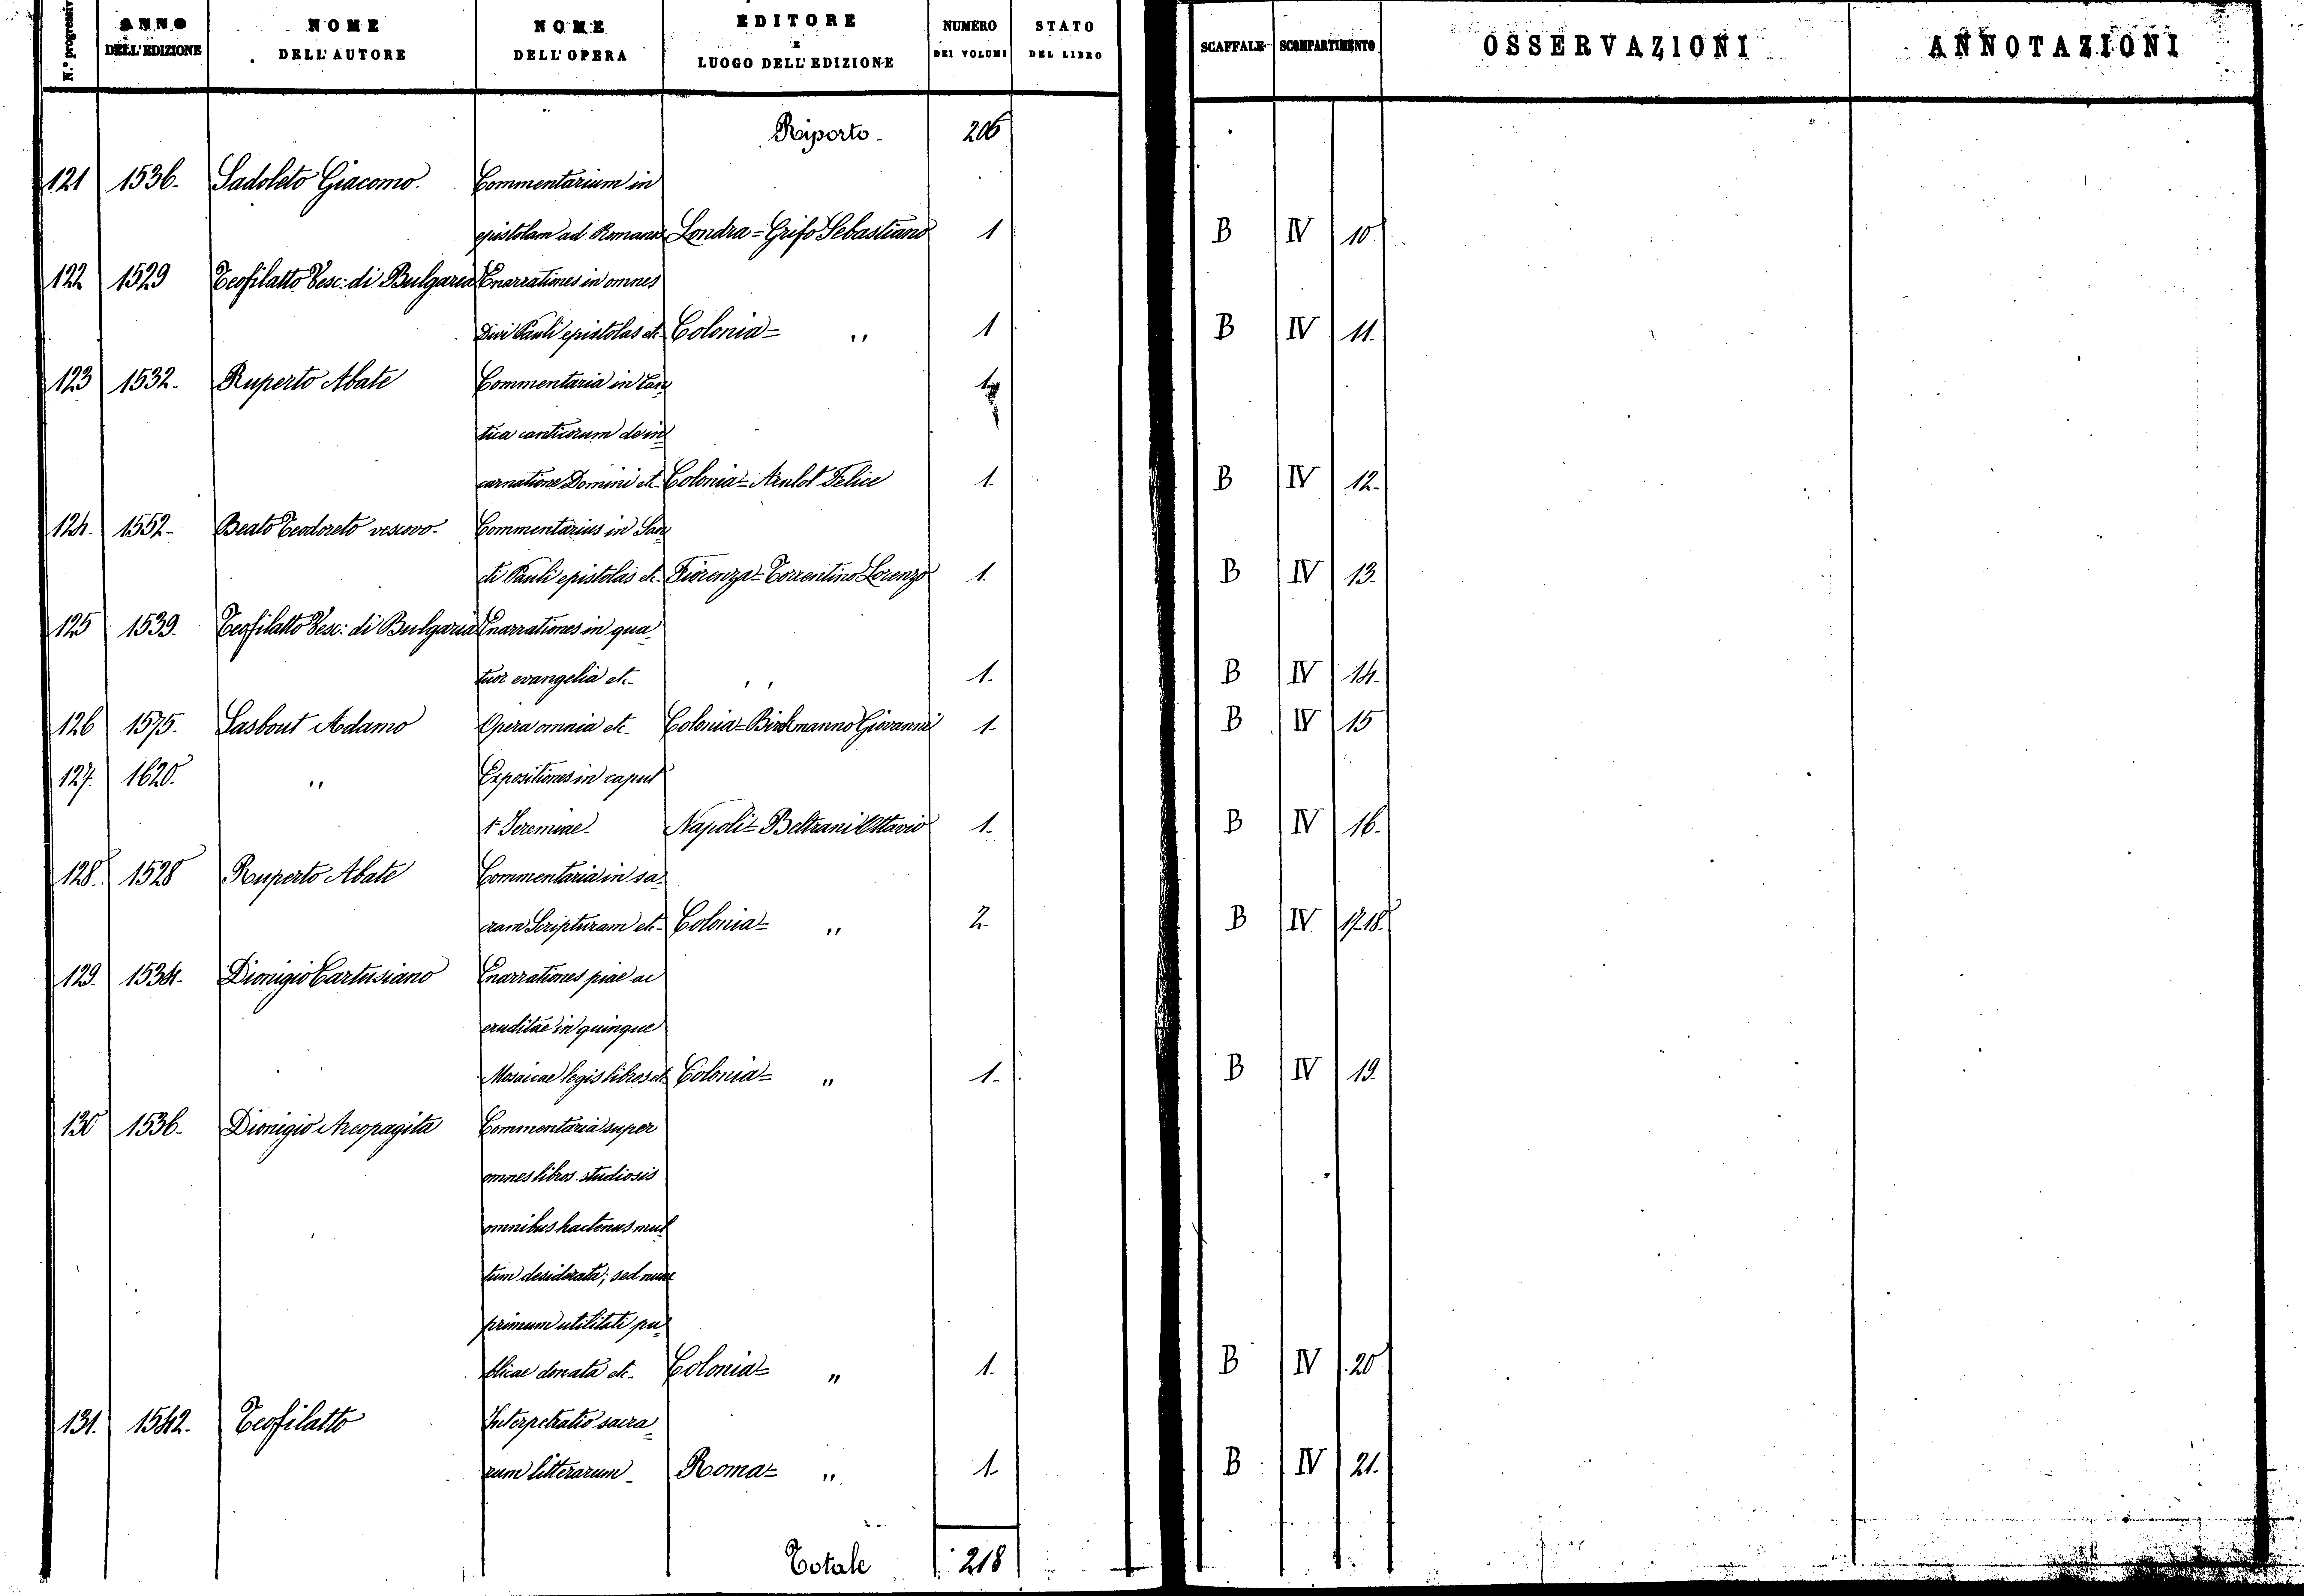 N.° progressiv
ANNO DELL'EDIZIONE
NOME DELL'AUTORE
NOME DELL'OPERA
EDITORE E LUOGO DELL'EDIZIONE
NUMERO DEI VOLUMI
STATO DEL LIBRO
SCAFFALE
SCOMPARTIMENTO
OSSERVAZIONI
ANNOTAZIONI
Riporto - 206
121 1536- Sadoleto Giacomo. Commentarium in
epistolam ad Romanos Londra = Grifo Sebastiano 1 B IV 10
122 1529 Teofilatto Vesc: di Bulgaria Enarrationes in omnes
Divi Pauli epistolas etc- Colonia = " 1 B IV 11.
123 1532- Ruperto Abate Commentaria in Can= 1
tica canticorum de in=
carnatione Domini etc- Colonia = Felice 1- B IV 12-
124. 1552- Beato Teodoreto vescovo- Commentarius in San=
cti Pauli epistolas etc- Fiorenza = Torrentino Lorenzo 1. B IV 13.
125 1539. Teofilatto Vesc: di Bulgaria Enarrationes in qua=
tuor evangelia etc- " 1. B IV 14.
126 1575. Sasbout Adamo Opera omnia etc- Colonia = Birkmanno Giovanni 1- B IV 15
127. 1620. " Expositiones in caput
1- Jeremiae- Napoli = Beltrani Ottavio 1- B IV 16-
128. 1528 Ruperto Abate Commentaria in sa=
cram Scripturam etc- Colonia = " 2- B IV 17-18.
129. 1534- Dionigio Cartusiano Enarrationes piae ac
eruditae in quinque
Mosaicae legis libros etc Colonia = " 1- B IV 19.
130 1536- Dionigio Areopagita Commentaria super
omnes libros studiosis
omnibus hactenus mul=
tum desiderata; sed nunc
primum utilitati pu=
blicae donata etc- Colonia = " 1. B IV 20
131. 1542. Teofilatto Interpretatio sacra=
rum litterarum- Roma = " 1- B IV 21.
Totale 218